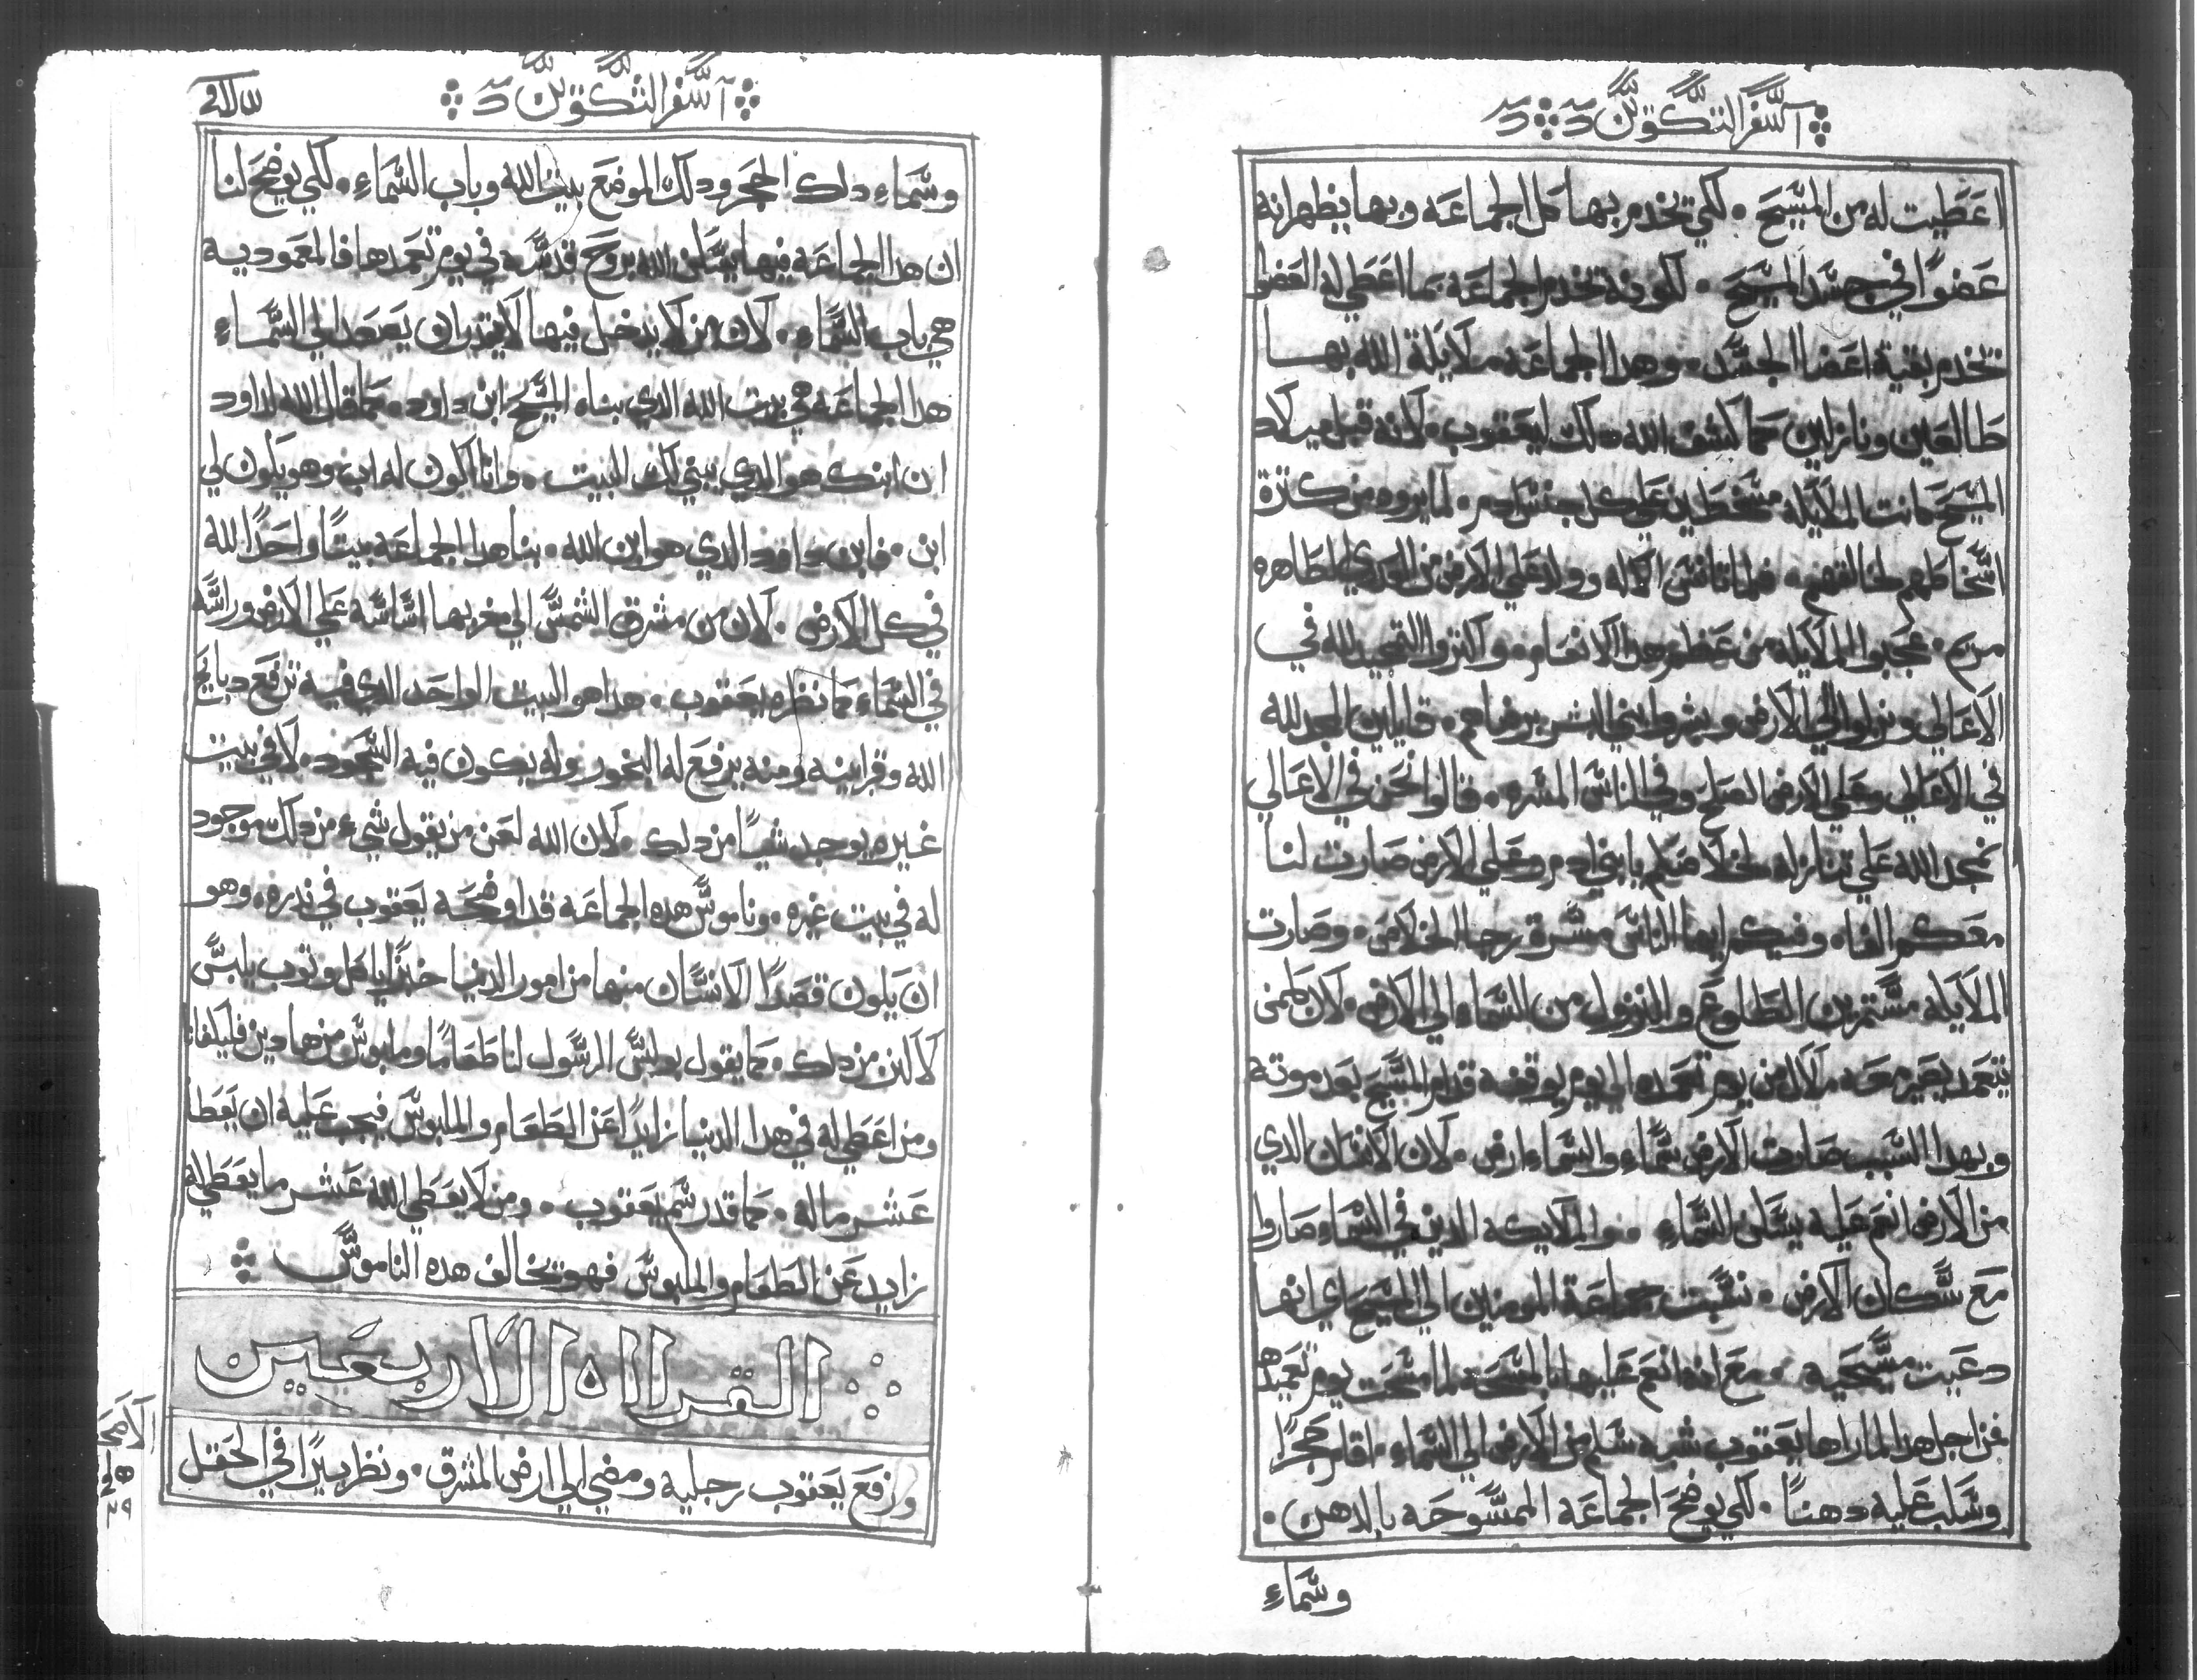 السفر التكوين
اعطيت له من المسيح . لكي تخدم بها كل الجماعه وبها يظهر انه
عضوًا في جسد المسيح . لكونه تخدم الجماعه بما اعطي له العضو
تخدم بقية اعضا الجسد . وهدا الجماعه ملايكة الله بها
طالعين ونازلين كما كشف الله دلك ليعقوب . لانه قبل ميلاد
المسيح كانت الملايكه متسخطين علي كل جنس ادم . لما يروه من كترة
اسخاطهم لخالقهم . فلما تانس الاله وولد علي الارض من العدري الطاهره
مريم . عجبوا الملايكه من عظم هدا الانعام . واكتروا التمجيد لله في
الاعالي ونزلوا الي الارض وبشروا بني البشر برضاهم . قايلين المجد لله
في الاعالي وعلي الارض الصلح وفي الناس المسره . قالوا نحن في الاعالي
نمجد الله علي تنازله لخلاصكم يا بني ادم وعلي الارض صارت لنا
معكم الفاه وفيكم ايها الناس مسرة رجا الخلاص . وصارت
الملايكه مستمرين الطلوع والنزول من السما الي الارض . لان لمن
يتعمد يصير معه ملاك من يوم تعمده الي يوم يوقفه قدام المسيح بعد موته
وبهدا السبب صارت الارض سماء والسماء ارض . لان الانسان الدي
من الارض انعم عليه يسكن السماء . والملايكه الدين في السماء صاروا
مع سكان الارض . نسبت جماعة المومنين الي المسيح اي انها
دعيت مسيحيه . مع انه انعم عليها بالمسحه لما مسحت يوم تعميدها
فمن اجل هدا لما راها يعقوب شبه سلم من الارض الي السماء . اقام حجرًا
وسكب عليه دهنًا . لكي يوضح الجماعه الممسوحه بالدهن .
وسماء
السفر التكوين
وسماء دلك الحجر ودلك الموضع بيت الله وباب السماء . لكي يوضح لنا
ان هدا الجماعه فيها يسكن الله بروح قدسه في يوم تعمدها فالمعموديه
هي باب السماء . لان من لا يدخل فيها لا يقدر ان يصعد الي السماء
هدا الجماعه هي بيت الله الدي بناه المسيح ابن داود . كما قال الله لداود
ان ابنك هو الدي يبني لك البيت . وانا اكون له اب وهو يكون لي
ابن . فابن داود الدي هو ابن الله . بنا هدا الجماعه بيتًا واحدًا لله
في كل الارض . لان من مشرق الشمس الي مغربها اساسه علي الارض وراسه
في السماء كما نظره يعقوب . هدا هو البيت الواحد الدي فيه ترفع دبايح
الله وقرابينه ومنه يرفع له البخور وله يكون فيه السجود . لا في بيت
غيره يوجد شيًا من دلك . لان الله لعن من يقول شيء من دلك موجود
له في بيت غيره . وناموس هده الجماعه قد اوضحه يعقوب في ندره . وهو
ان يكون قصدًا الانسان منها من امور الدنيا خبزًا ياكل وتوب يلبس
لا اكتر من دلك . كما يقول بولس الرسول لنا طعامًا وملبوس منهادين فليكفانا
ومن اعطي له في هدا الدنيا زايدًا عن الطعام والملبوس فيجب عليه ان يعطا
عشر ماله . كما قد رسم يعقوب . ومن لا يعطي الله عشر ما يعطي له
زايد عن الطعام والملبوس فهو تخالف هده الناموس
القراه الاربعين
ورفع يعقوب رجليه ومضي الي ارض المشرق . ونظر بيرًا في الحقل
الاصحاح
٢٩